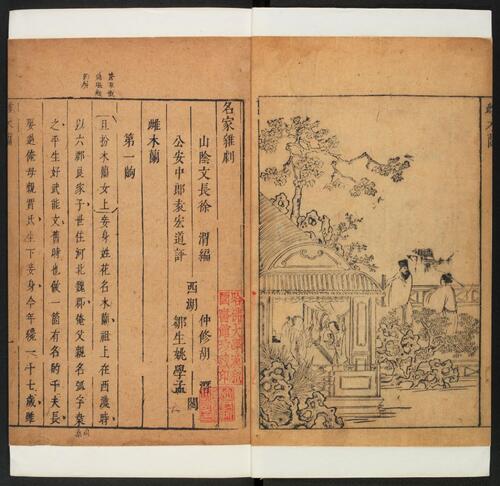 名家雜劇
山陰文長徐　渭編
公安中郎袁宏道評
西湖　仲修胡　潛
鄒生姚學孟　閱
雌木蘭
第一齣
旦扮木蘭女上妾身姓花名木蘭祖上在西漢時
以六郡良家子世住河北魏郡俺父親名弧字桑
之平生好武能文舊時也做一箇有名的千夫長
娶過俺母親賈氏生下妾身今年纔一十七歲雖
雌木蘭